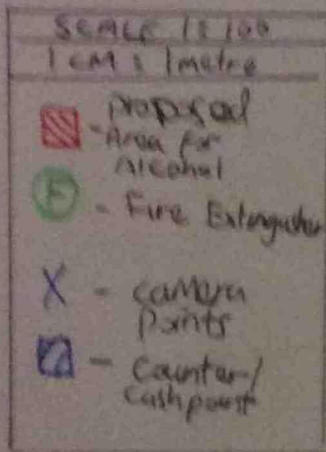 SCALE 1:100
1 CM : 1metre
proposed
- Area for
Alcohol
F - Fire Extinguisher
X - camera
points
- Counter/
Cashpoint